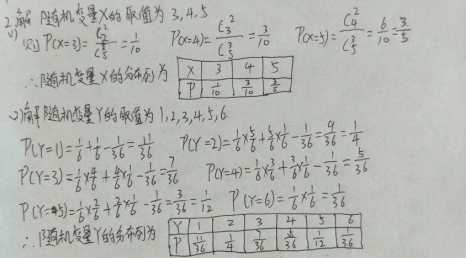 2.解 随机变量X的取值为 3,4,5
(1) 则 P(X=3)=C₂²/C₅³=1/10 P(X=4)=C₃²/C₅³=3/10 P(X=5)=C₄²/C₅³=6/10=3/5
∴随机变量X的分布列为
X 3 4 5
P 1/10 3/10 3/5
(2)解随机变量Y的取值为1,2,3,4,5,6
P(Y=1)=1/6+1/6-1/36=11/36 P(Y=2)=1/6×5/6+5/6×1/6-1/36=9/36=1/4
P(Y=3)=1/6×4/6+4/6×1/6-1/36=7/36 P(Y=4)=1/6×3/6+3/6×1/6-1/36=5/36
P(Y=5)=1/6×2/6+2/6×1/6-1/36=3/36=1/12 P(Y=6)=1/6×1/6=1/36
∴随机变量Y的分布列为
Y 1 2 3 4 5 6
P 11/36 1/4 7/36 5/36 1/12 1/36